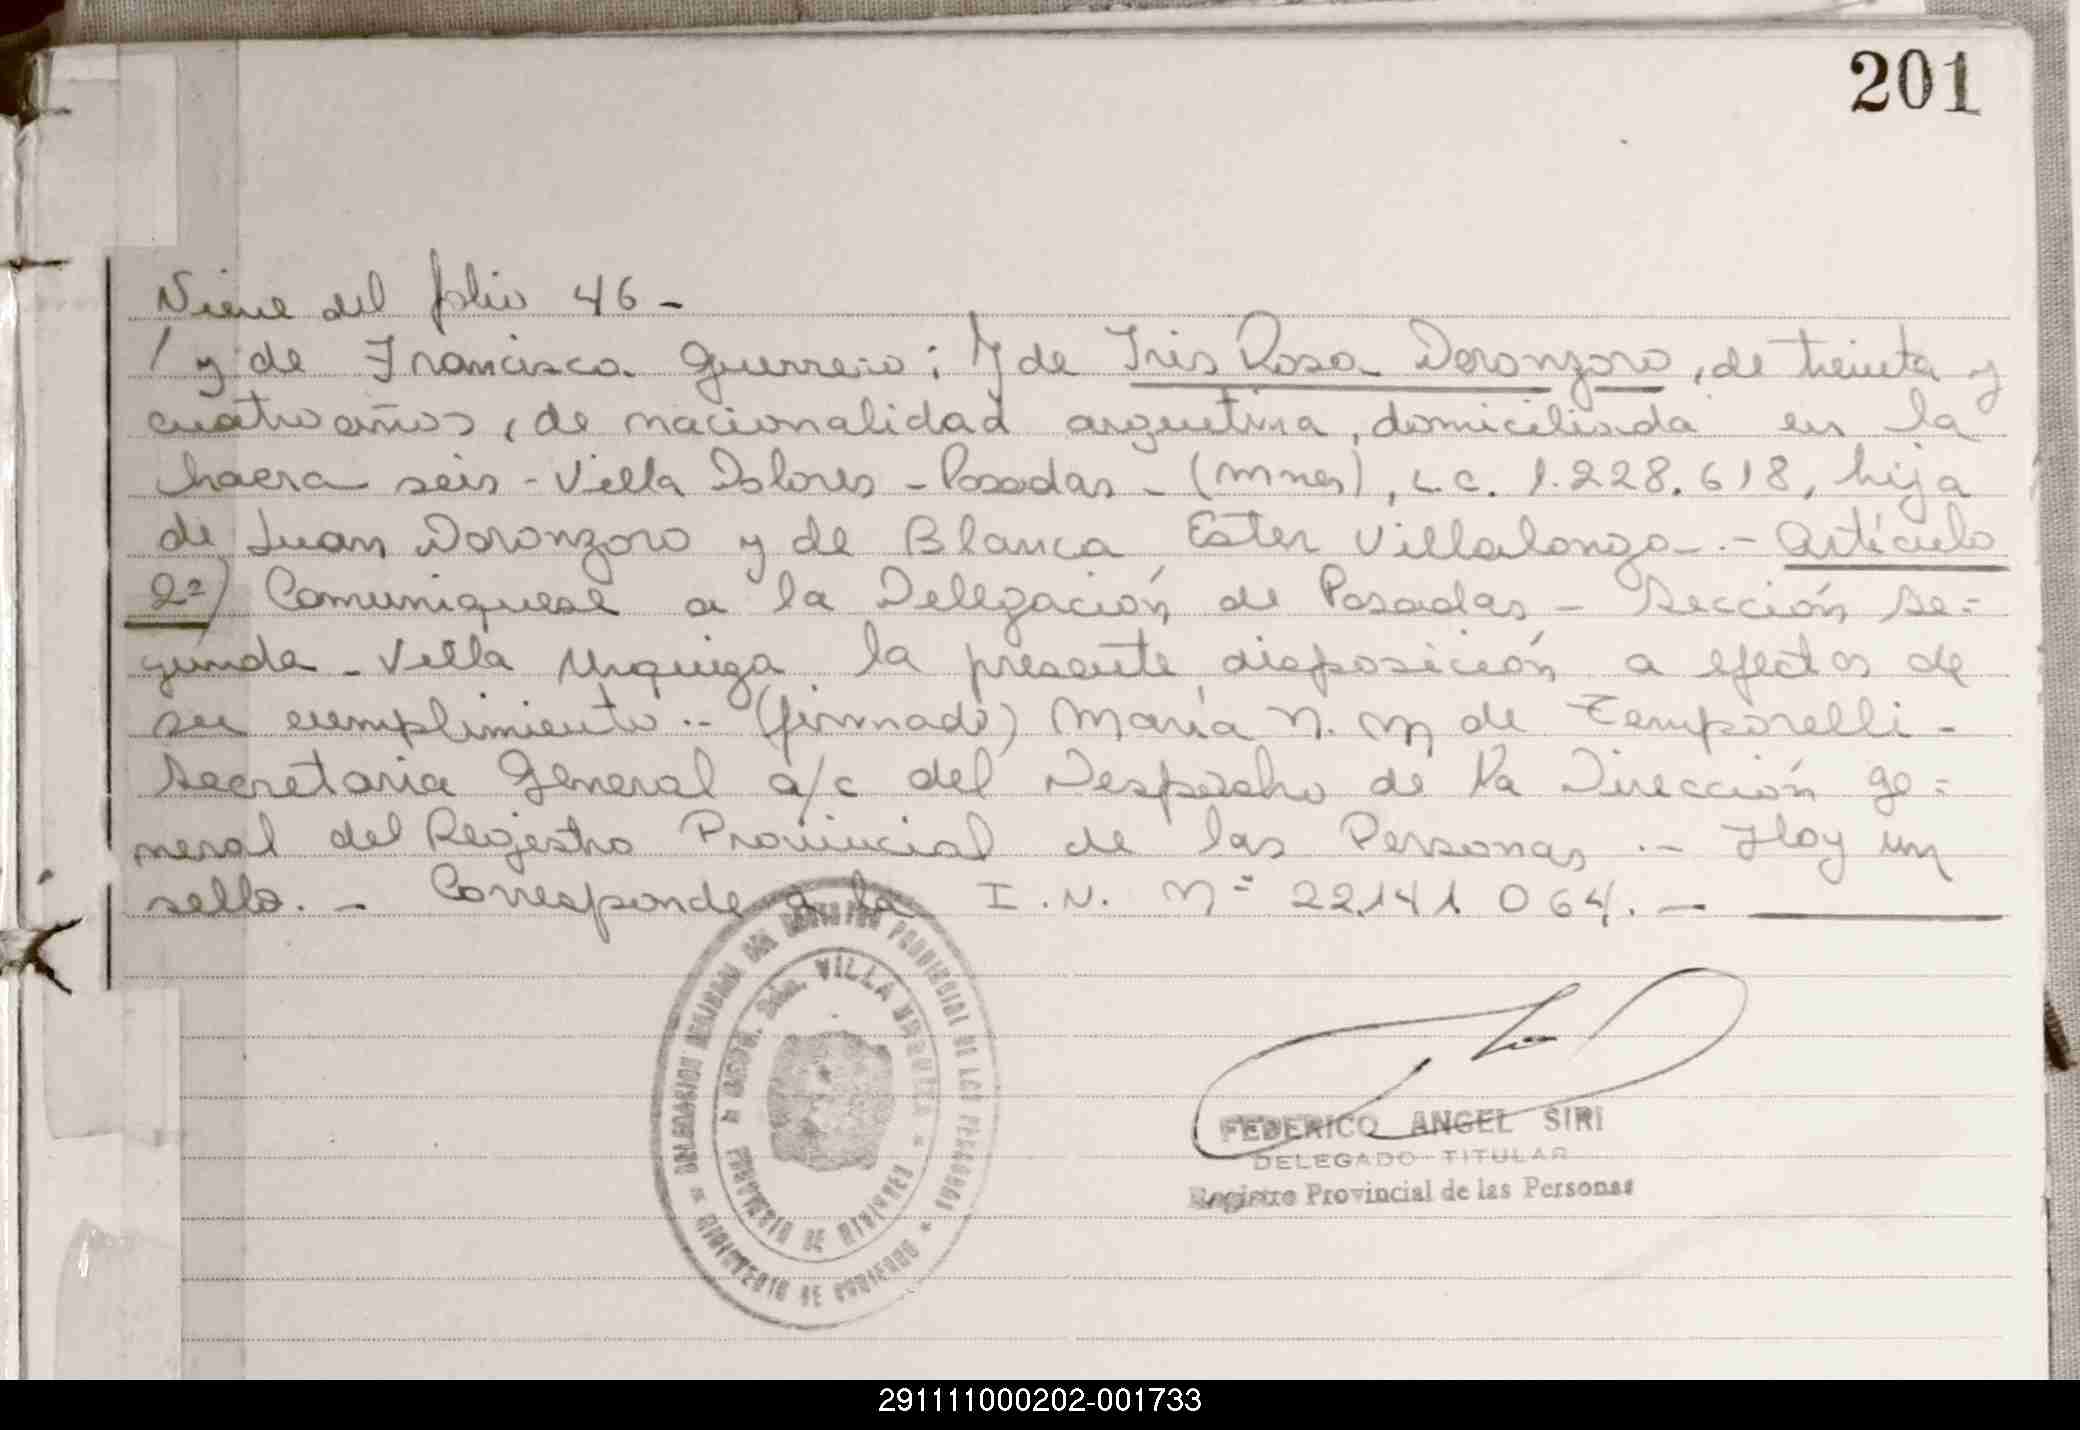 201
Viene del folio 46 -
/ y de Francisca Guerrero; Y de Iris Rosa Doronzoro, de treinta y
cuatro años, de nacionalidad argentina, domiciliada en la
chacra seis - Villa Dolores - Posadas - (Mnes), L.C. 1.228.618, hija
de Juan Doronzoro y de Blanca Ester Villalonga -.- Artículo
2º) Comuniquese a la Delegación de Posadas - Sección Se=
gunda - Villa Urquiza la presente disposición a efectos de
su cumplimiento .- (firmado) María N. M de Temporelli -
Secretaria General a/c del Despacho de la Dirección Ge=
neral del Registro Provincial de las Personas .- Hay un
sello. - Corresponde a la I.N. Nº 22.141.064. —
DELEGACION DEL REGISTRO PROVINCIAL DE LAS PERSONAS * MINISTERIO DE GOBIERNO *
Sda. VILLA URQUIZA * PROVINCIA DE MISIONES
FEDERICO ANGEL SIRI
DELEGADO TITULAR
Registro Provincial de las Personas
291111000202-001733